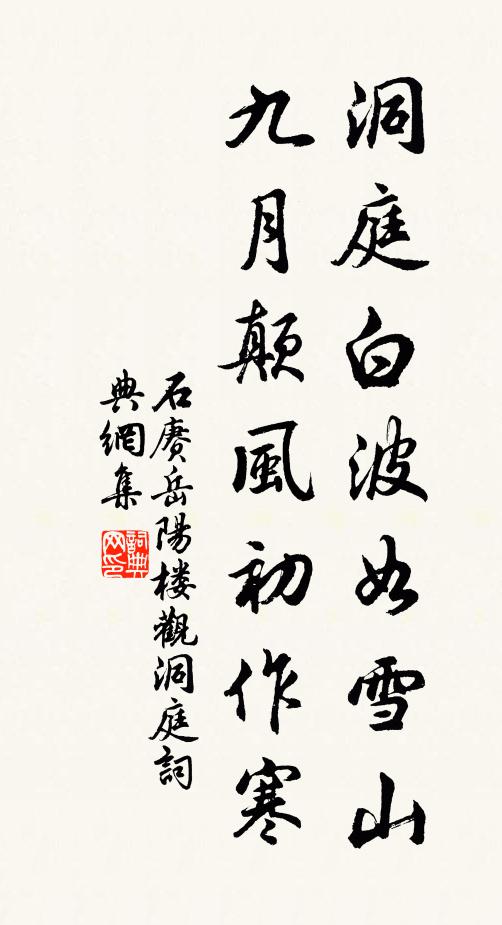 洞庭白波如雪山
九月顛風初作寒
石賡岳陽楼觀洞庭詞
典網集
詞典网印